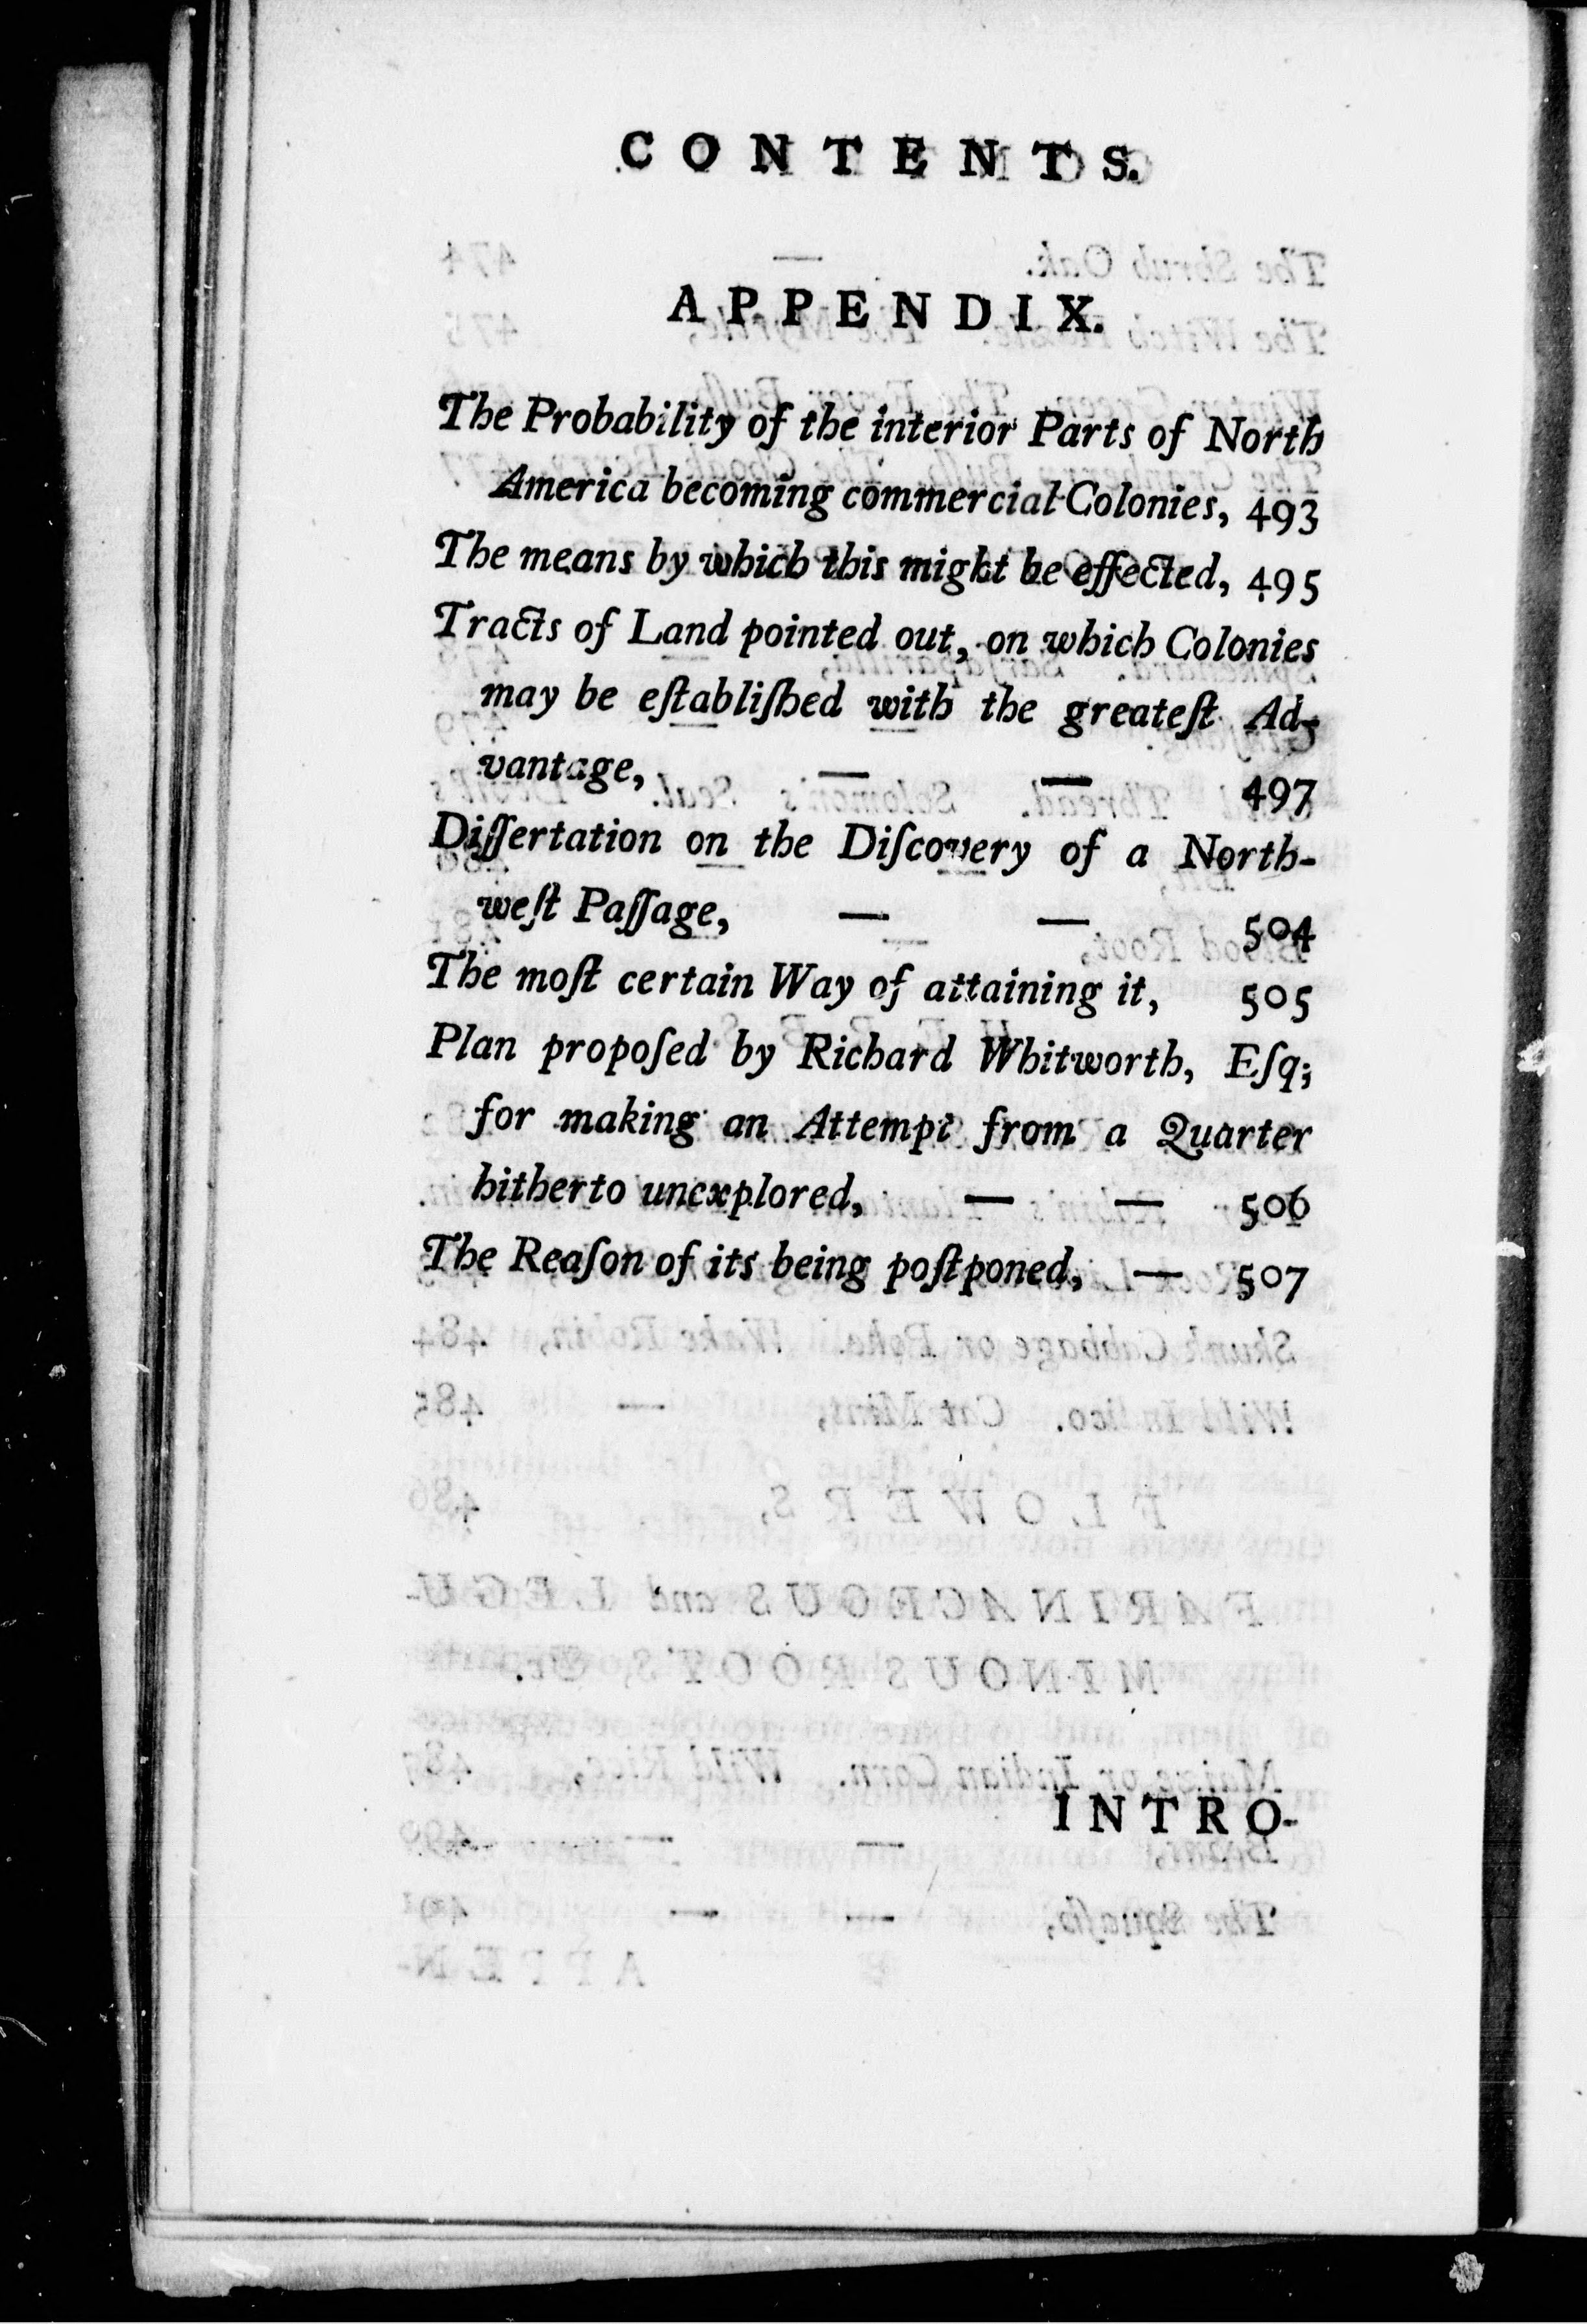 CONTENTS.
APPENDIX.
The Probability of the interior Parts of North
America becoming commercial Colonies, 493
The means by which this might be effected, 495
Tracts of Land pointed out, on which Colonies
may be eſtabliſhed with the greateſt Ad-
vantage, — — 497
Diſſertation on the Diſcovery of a North-
weſt Paſſage, — — 504
The moſt certain Way of attaining it, 505
Plan propoſed by Richard Whitworth, Eſq;
for making an Attempt from a Quarter
hitherto unexplored, — — 506
The Reaſon of its being poſtponed, — 507
INTRO-